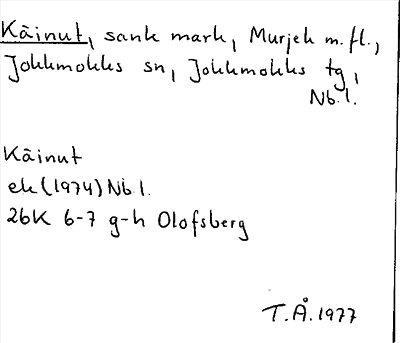 Käinut, sank mark, Murjek m.fl.,
Jokkmokks sn, Jokkmokks tg,
Nb.l.
Käinut
ek (1974) Nb.l.
26K 6-7 g-h Olofsberg
T.Å. 1977